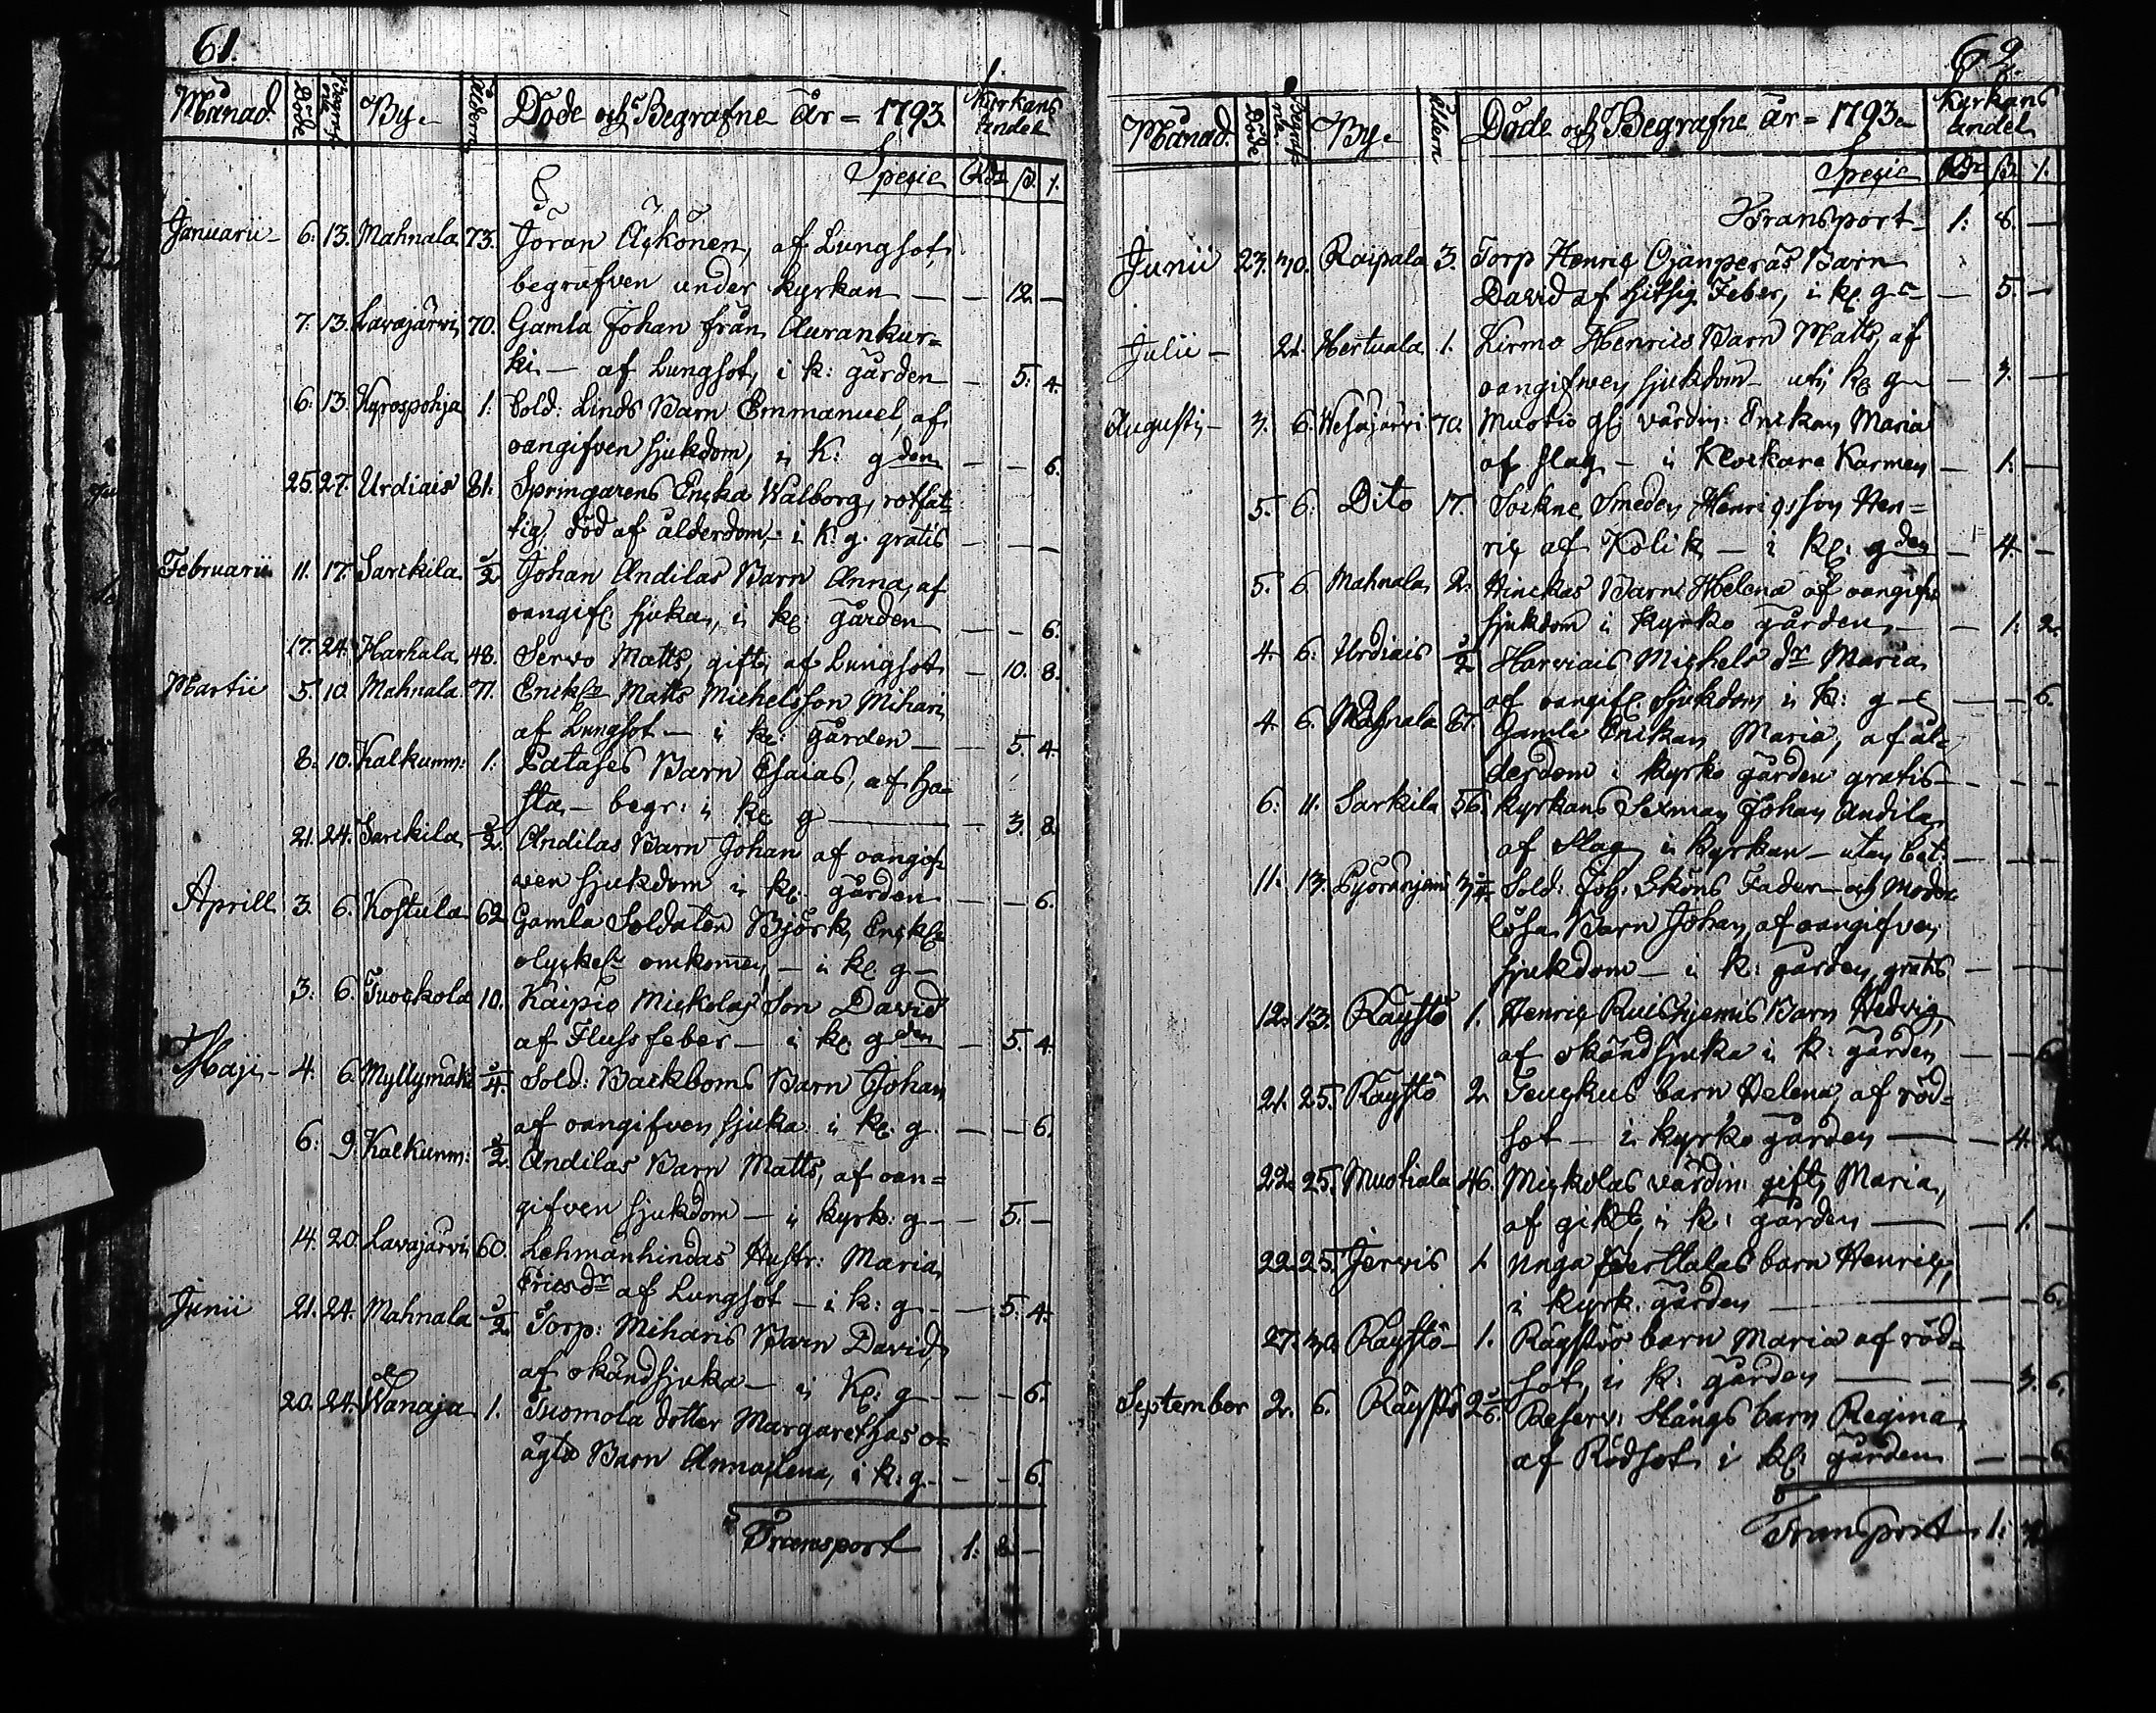 61.
Månad. Döde Begrafne By. Åldern Döde och Begrafne År = 1793. Kyrkans andel
Specie Rdr ß. 1.
Januarii 6. 13. Mahnala 73. Jöran Äckönen, af Lungsot,
begrafven under kyrkan — — 12 —
7. 13. Lavajärvi 70. Gamla Johan från Aurankur=
ki — af Lungsot, i k: gården — 5. 4.
6. 13. Kyrospohja 1. Sold: Linds Barn Emmanuel, af
oangifven sjukdom, i K: gden — — 6.
25. 27. Urdiais 81. Springarens Encka Walborg, rotfat=
tig, död af ålderdom, i K: g. gratis — — —
Februarii 11. 17. Sarckila 1/2 Johan Andilas Barn Anna, af
oangif: sjuka, i k: gården — — 6.
17. 24. Harhala 48. Servo Matts, gift, af Lungsot — 10. 8.
Martii 5. 10. Mahnala 71. Matts Michelsson Mihari
af Lungsot — i k: gården — — 5. 4.
8. 10. Kalkunm: 1. Patases Barn Esaias, af ha=
sta — begr: i k: g — 3. 8.
21. 24. Sarckila 1/2 Andilas Barn Johan af oangif=
ven sjukdom i k: gården — — 6.
Aprill 3. 6. Kostula 62 Gamla Soldaten Björk,
omkommen, — i k: g —
3. 6. Tuockola 10. Kaipio Mickolas Son David
af Flussfeber — i k: gden — 5. 4.
Maji 4. 6. Myllymäki 1/4. Sold: Backboms Barn Johan
af oangifven sjuka i k: g. — — 6.
6. 9. Kalkunm: 1/2. Andilas Barn Matts, af oan=
gifven sjukdom — i kyrk: g — — 5. —
14. 20. Lavajärvi 60. Lehmänhindas Hustr: Maria
Ericsdr af Lungsot — i k: g — — 5. 4.
Junii 21. 24. Mahnala 1/2 Torp: Miharis Barn David,
af okänd sjuka — i K: g — — 6.
20. 24. Wånaja 1. Tuomola dotter Margarethas o=
ägta Barn Annalena, i k: g. — — 6.
Transport 1. 8. —
62.
Månad. Döde Begrafne By. Åldern Döde och Begrafne År = 1793. Kyrkans andel
Specie Rdr ß. 1.
Transport 1. 8. —
Junii 23. 30. Raipala 3. Torp Henric Ojanperäs Barn
David af hitsig Feber, i k: g — — 5. —
Julii — 21. Hertuala 1. Kirmo Henrics Barn Matts, af
oangifven sjukdom — uti k: g — — 3. —
Augusti 3. 6. Wesajärvi 70. Muotio gl: värdin: Enckan Maria
af slag — i Klockare Karmen — 1. —
5. 6. Dito 17. Sockne Smeden Henricsson Hen=
ric af Kolik — i k: gden — 4. —
5. 6. Mahnala 2. Hinckas Barn Helena af oangifv
sjukdom i kyrko gården — — 1. 2.
4. 6. Urdiais 1/2 Harviais Michels dr Maria
af oangif: sjukdom i k: g — — — 6.
4. 6. Mahnala 87. Gamla Enckan Maria, af ål=
derdom i kyrko gården gratis — — —
6. 11. Sarkila 56. kyrkans Sexman Johan Andila
af Slag i kyrkan — utan bet: — — —
11. 13. Pyöräniemi 3/4. Sold: Joh: Sköns Fader- och Moder
lösa Barn Johan, af oangifven
sjukdom — i k: gården, gratis — —
12. 13. Räystö 1. Henric Ruishjemis Barn Hedvig,
af okänd sjuka i k: gården — — 6
21. 25. Räystö 2. barn Helena, af röd=
sot — i kyrko gården — — 4. 2.
22. 25. Muotiala 46. Mickolas värdin: gift, Maria,
af gikt, i k: gården — — 1. —
22. 25. Jervis 1. Unga barn Henric,
i kyrk: gården — — — 6.
27. 30. Räystö — 1. Räystös barn Maria af röd=
sot, i k: gården — — — 3. 6.
September 2. 6. Räystö Reserv: Stångs barn Regina,
af Rödsot i k: gården — — 6
Transport 1: